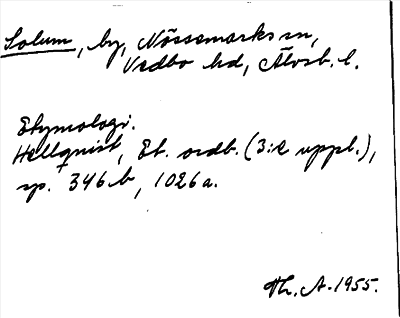 Solum, by, Nössemarks sn,
Vedbo hd, Älvsb. l.
Etymologi.
Hellquist, Et. ordb. (3:e uppl.),
sp. 346 b, 1026 a.
Th. A. 1955.